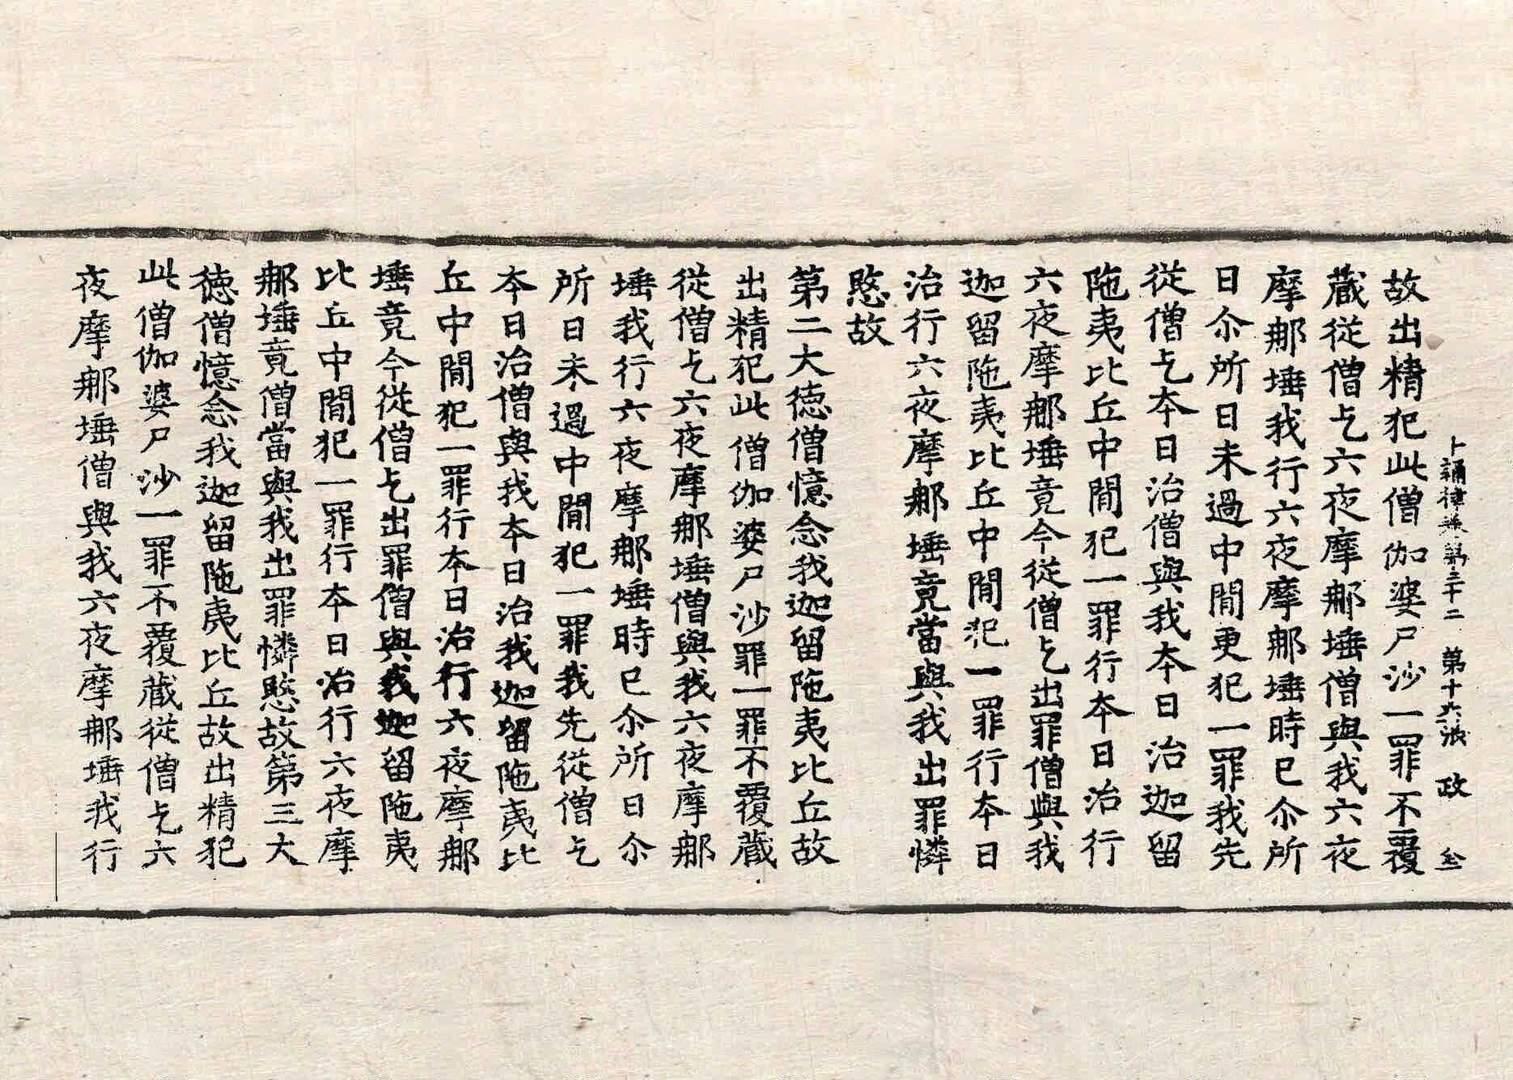 誦律第三十二 第十六張 政
故出精犯此僧伽婆尸沙一罪不覆
藏從僧乞六夜摩那埵僧與我六夜
摩那埵我行六夜摩那埵時已尒所
日尒所日未過中間更犯一罪我先
從僧乞夲日治僧與我夲日治迦留
陁夷比丘中間犯一罪行夲日治行
六夜摩那埵竟今從僧乞出罪僧與我
迦留陁夷比丘中間犯一罪行夲日
治行六夜摩那埵竟當與我出罪憐
愍故
第二大徳僧憶念我迦留陁夷比丘故
出精犯此僧伽婆尸沙罪一罪不覆藏
從僧乞六夜摩那埵僧與我六夜摩那
埵我行六夜摩那埵時已尒所日尒
所日未過中間犯一罪我先從僧乞
夲日治僧與我夲日治我迦留陁夷比
丘中間犯一罪行夲日治行六夜摩那
埵竟今從僧乞出罪僧與我迦留陁夷
比丘中間犯一罪行夲日治行六夜摩
那埵竟僧當與我出罪憐愍故第三大
徳僧憶念我迦留陁夷比丘故出精犯
此僧伽婆尸沙一罪不覆藏從僧乞六
夜摩那埵僧與我六夜摩那埵我行